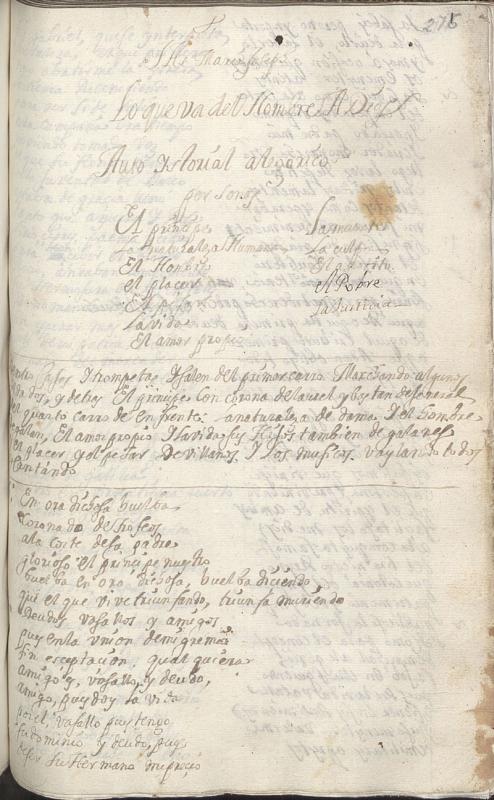 275
Jhs Maria y Joseph
Lo que va del Hombre A Dios
Auto Ystorial alegorico
personas
El principe
La naturaleza Humana
El Hombre
el placer
El pesar
La vida
El amor propio
La muerte
La culpa
El
el Pobre
La Justicia
Caxas y trompetas Y salen del primer carro Marchando algunos
soldados, y detras El principe con corona de laurel y baston de General
del quarto carro de en frente: la naturaleza de dama Y el Hombre
de galan, El amor propio Y la vida sus Hijos tambien de galanes
el placer y el pesar De villanos. Y los musicos vaylando todos
y cantando
En ora dichosa buelba
Coronado de trofeos
a la corte de su padre
glorioso el principe nuestro
buelba en ora dichosa, buelba diciendo
que el que vive triunfando, triunfa muriendo
Deudos vasallos y amigos
pues en la union de mi gremio
sin esceptacion qualquiera
amigo es, vasallo y deudo,
amigo, pues doy la vida
por el, vasallo pues tengo
su dominio y deudo, pues
de ser su Hermano me precio